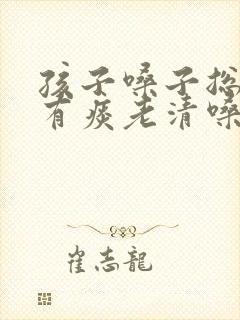 孩子嗓子总
有痰老清嗓
崔志龍